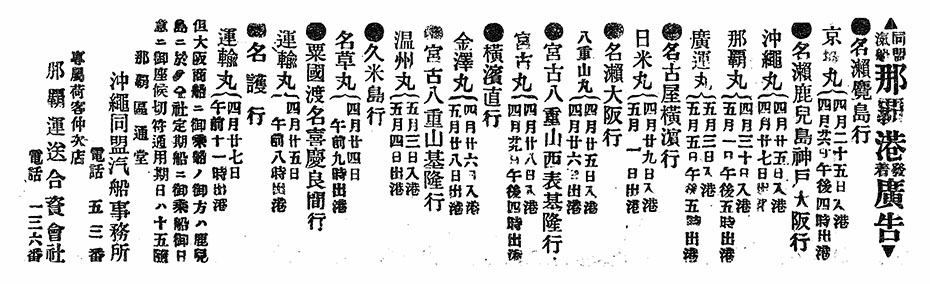 ▲同盟汽船那覇港發着廣告▼
●名瀨鹿島行
京城丸 四月二十五日入港
四月廿六日午後四時出港
●名瀨鹿兒島神戸大阪行
沖繩丸 四月廿七日入港
四月 日出港
那覇丸 四月三十日入港
五月一日午後五時出港
廣運丸 五月三日入港
五月五日午後五時出港
●名古屋橫濱行
日米丸 四月廿九日入港
五月 日出港
●名瀨大阪行
八重山丸 四月廿五日入港
四月廿六日出港
●宮古八重山西表基隆行
宮古丸 四月廿三日入港
四月廿九日午後四時出港
●橫濱直行
金澤丸 四月廿六日入港
四月廿八日出港
●宮古八重山基隆行
温州丸 五月三日入港
五月四日出港
●久米島行
名草丸 四月廿四日
午前九時出港
●粟國渡名喜慶良間行
運輸丸 四月廿五日
午前八時出港
●名護行
運輸丸 四月廿七日
午前十一時出港
但大阪商船ニ御乘船ノ御方ハ鹿兒
島ニ於テ仝社定期船ニ御乘船御日
意ニ御座候切符通用期日ハ十五隨
那覇區通堂
沖繩同盟汽船事務所
電話 五三番
專屬荷客仲次店
那覇運送合資會社
電話 一三六番